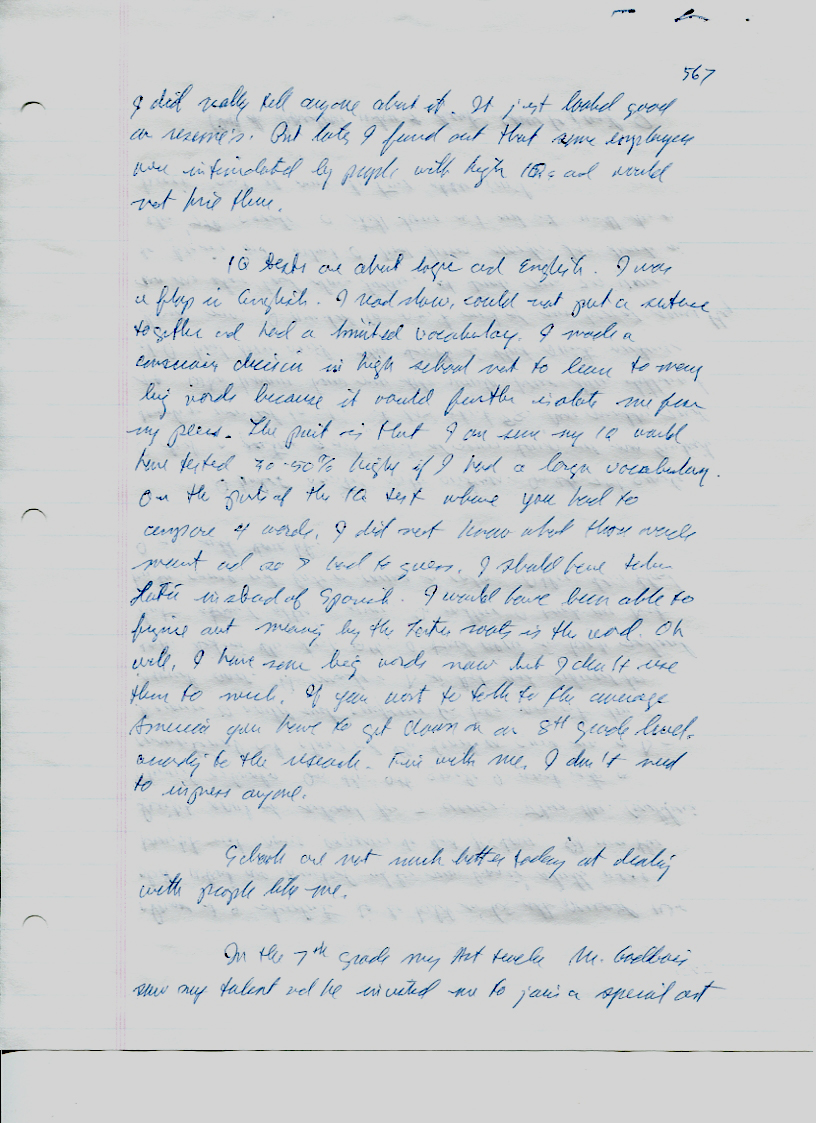 567
I did really tell anyone about it. It just looked good
on resume's. But later I found out that some employers
were intimidated by people with high IQs and would
not hire them.
IQ tests are about logic and English. I was
a flop in English. I read slow, could not put a sentence
together and had a limited vocabulary. I made a
conscious decision in high school not to learn to many
big words because it would further isolate me from
my peers. The point is that I am sure my IQ would
have tested 30-50% higher if I had a larger vocabulary.
On the parts of the IQ test where you had to
compare 4 words, I did not know what those words
meant and so I had to guess. I should have taken
Latin instead of Spanish. I would have been able to
figure out meaning by the Latin roots in the word. Oh
well, I have some big words now but I don't use
them to much. If you want to talk to the average
America you have to get down on an 8th grade level.
according to the research. Fine with me. I don't need
to impress anyone.
Schools are not much better today at dealing
with people like me.
In the 7th grade my Art teacher Mr.
saw my talent and he invited me to join a special art